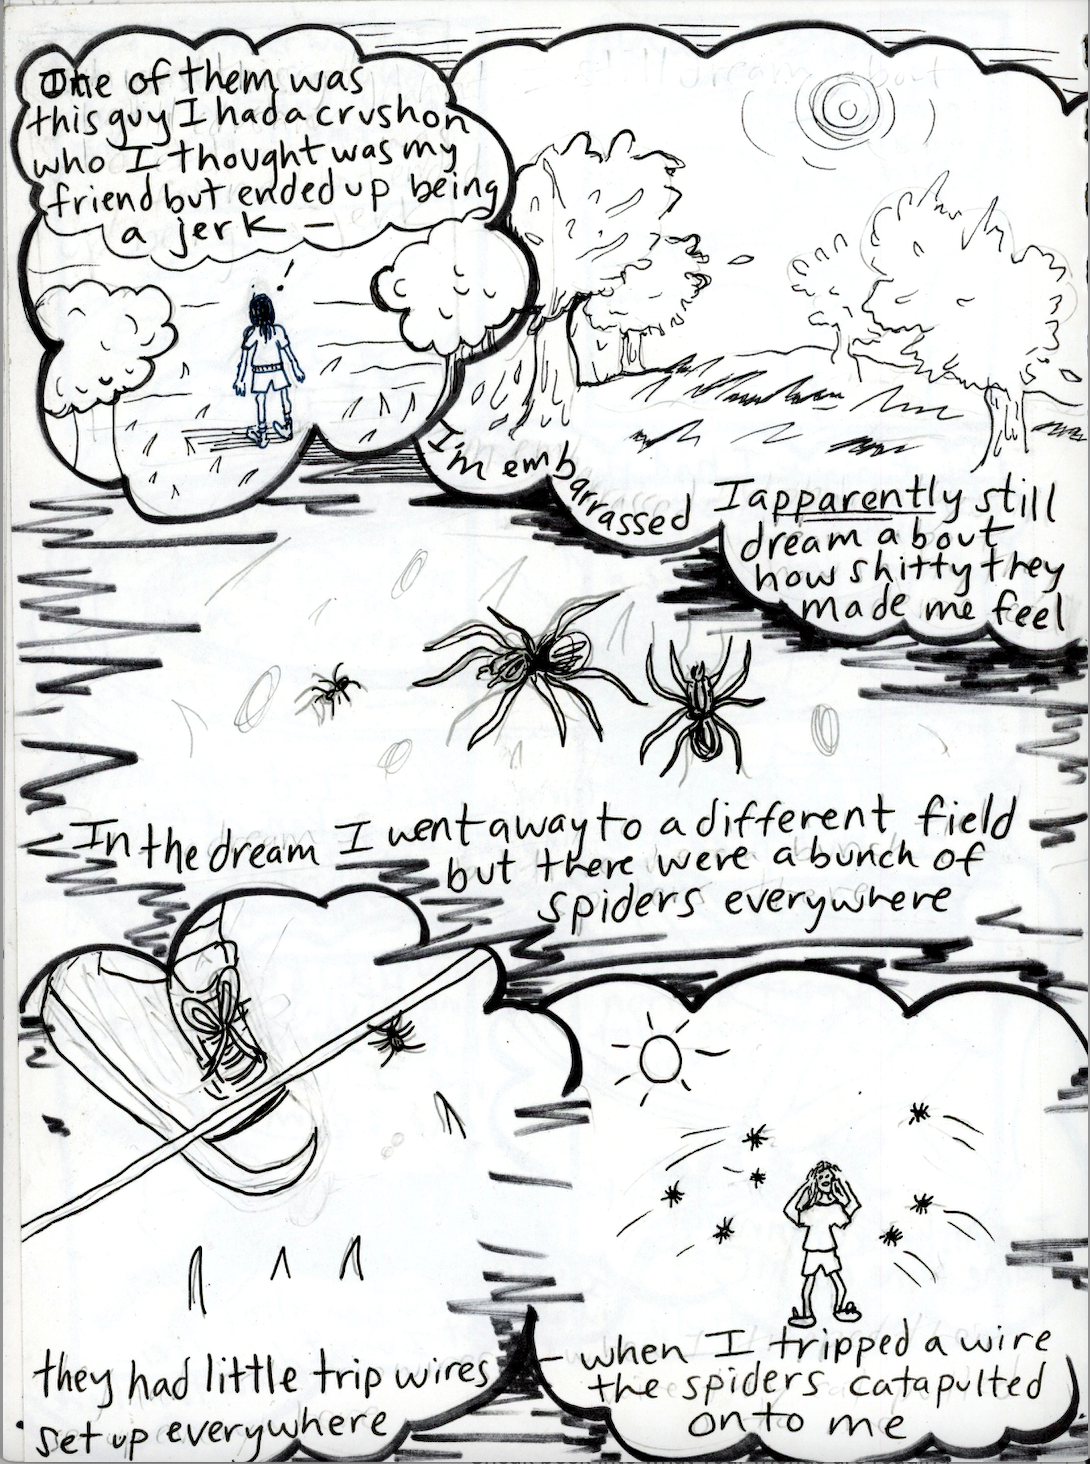 One of them was
this guy I had a crush on
who I thought was my
friend but ended up being
a jerk —
!
I'm embarrassed
I apparently still
dream about
how shitty they
made me feel
In the dream I went away to a different field
but there were a bunch of
spiders everywhere
they had little trip wires
set up everywhere
— when I tripped a wire
the spiders catapulted
onto me